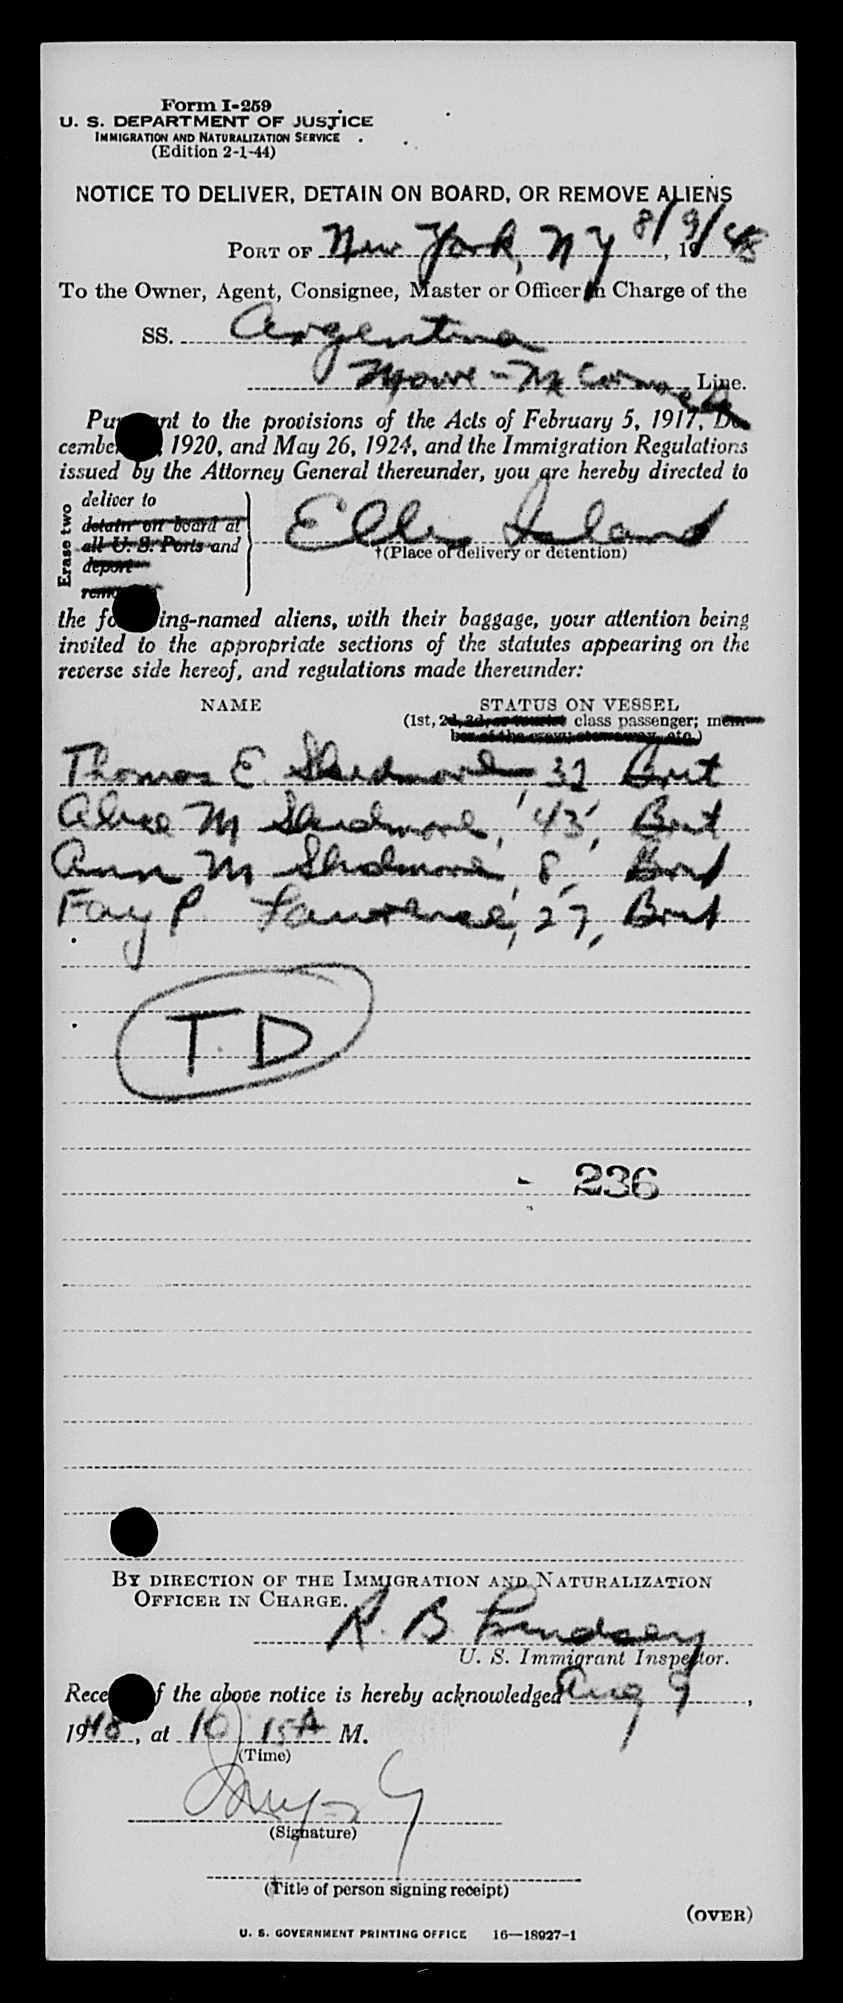 Form I-259
U. S. DEPARTMENT OF JUSTICE
IMMIGRATION AND NATURALIZATION SERVICE
(Edition 2-1-44)
NOTICE TO DELIVER, DETAIN ON BOARD, OR REMOVE ALIENS
PORT OF New York, NY 8/9/48, 19
To the Owner, Agent, Consignee, Master or Officer in Charge of the
SS. Argentina
Moore-McCormack Line.
Pursuant to the provisions of the Acts of February 5, 1917, De-
cember , 1920, and May 26, 1924, and the Immigration Regulations
issued by the Attorney General thereunder, you are hereby directed to
Erase two
deliver to
detain on board at
all U. S. Ports and
deport
remove
Ellis Island
†(Place of delivery or detention)
the following-named aliens, with their baggage, your attention being
invited to the appropriate sections of the statutes appearing on the
reverse side hereof, and regulations made thereunder:
NAME STATUS ON VESSEL
(1st, 2d, 3d, or tourist class passenger; mem-
ber of the crew, stowaway, etc.)
Thomas E. Skidmore 37 Brit
Alice M Skidmore, 43, Brit
Ann M Skidmore, 8, Brit
Fay P. Lawrence, 27, Brit
T.D
236
BY DIRECTION OF THE IMMIGRATION AND NATURALIZATION
OFFICER IN CHARGE.
R. B. Lindsey
U. S. Immigrant Inspector.
Receipt of the above notice is hereby acknowledged Aug 9,
1948, at 10 15 A M.
(Time)
(Signature)
(Title of person signing receipt)
(OVER)
U. S. GOVERNMENT PRINTING OFFICE 16—18927-1